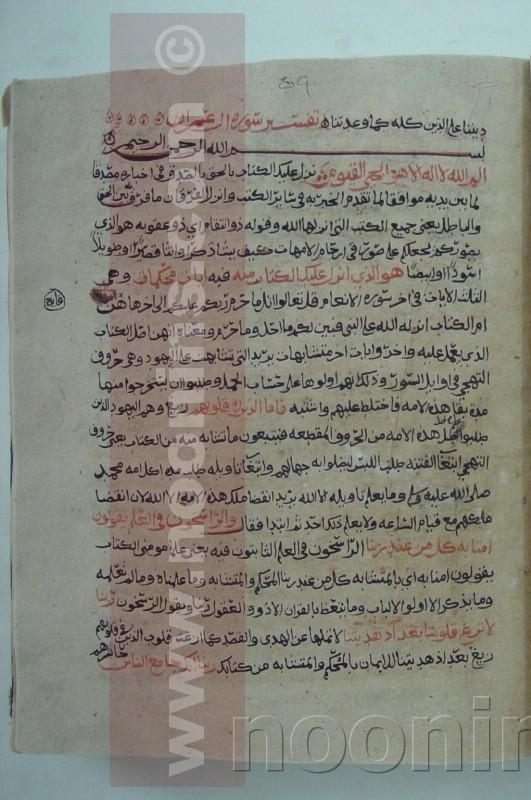 دیننا علی الدین کله کما وعدتنا تفسیر سورة ال عمران
بسم الله الرحمن الرحیم
الم الله لا اله الا هو الحی القیوم نزل علیک الکتاب بالحق بالصدق فی اخباره مصدقا
لما بین یدیه موافقا لما تقدم الخبر به فی سایر الکتب وانزل الفرقان ما فرق بین الحق
والباطل یعنی جمیع الکتب التی انزلها الله وقوله ذو انتقام ای ذو عقوبه هو الذی
یصورکم یجعلکم علی صور فی ارحام الامهات کیف یشا ذکرا وانثا قصیرا وطویلا
اسودا وابیضا هو الذی انزل علیک الکتاب منه فیه ایات محکمات وهی
الثلث الایات فی اخر سوره الانعام قل تعالوا اتل ما حرم ربکم علیکم الی اخرها هن
ام الکتاب انزله الله علی النبی فبین لکم ما احل وما حرم ومعناه انهن اصل الکتاب
الذی یعمل علیه واخر وایات اخر متشابهات یرید التی تشابهت علی الیهود وهی حروف
التهجی فی اوایل السور وذلک انهم اولوها علی حساب الجمل وطلبوا ان یستخرجوا منها
مدة بقا هذه الامه فاختلط علیهم واشتبه فاما الذین فی قلوبهم زیغ وهم الیهود الذین
طلبوا اجل هذه الامه من الحروف المقطعه فیتبعون ما تشابه منه من الکتاب یعنی حروف
التهجی ابتغا الفتنه طلبا اللبس لیضلوا به جهالهم وابتغا تاویله طلب مده اکل امه محمد
صلوا الله علیه وسلم وما یعلم تاویله الا الله یرید انقضا ملک هذه الامه الا الله لان انقضا
ملکهم مع قیام الساعه ولا یعلم ذلک احد ثم ابتدا فقال والراسخون فی العلم یقولون
امنا به کل من عند ربنا الراسخون فی العلم الثابتون فیه یعنی علما مومنی الکتاب
یقولون امنا به ای بالمتشابه کل من عند ربنا المحکم والمتشابه وما علمناه وما لم نعلمه
وما یذکر الا اولوا الالباب وما یتعظ بالقران الا ذوو العقول ویقول الراسخون ربنا
لا تزغ قلوبنا بعد اذ هدیتنا لا تملها عن الهدی والقصد کما ازغت قلوب الذین فی قلوبهم
زیغ بعد اذ هدیتنا للایمان بالمحکم والمتشابه من کتابک ربنا انک جامع الناس
www.noorlib.ir ©
noorlib